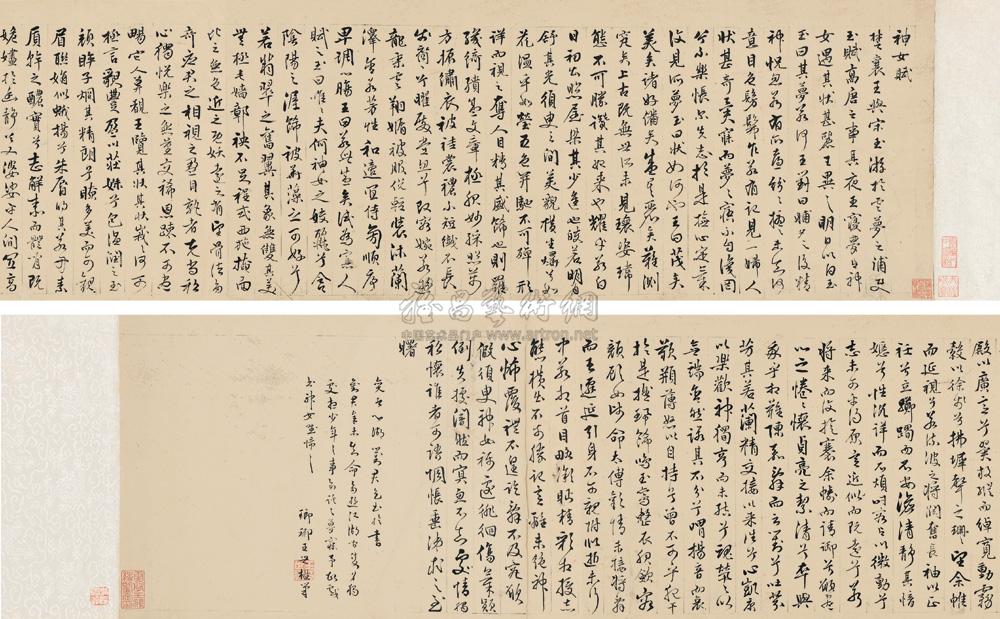 神女賦
楚襄王與宋玉遊於雲夢之浦使
玉賦高唐之事其夜王寢夢與神
女遇其狀甚麗王異之明日以白玉
玉曰其夢若何王對曰晡夕之後精
神怳忽若有所喜紛紛擾擾未知何
意目色髣髴乍若有記見一婦人
狀甚奇異寐而夢之寤不自識罔
兮不樂悵尒失志於是撫心定氣
復見所夢玉曰狀如何也王曰茂矣
美矣諸好備矣盛矣麗矣難測
究矣上古既無世所未見瓌姿瑋
態不可勝讚其始來也耀乎若白
日初出照屋梁其少進也皎若明月
舒其光須臾之間美貌橫生爗兮如
花溫乎如瑩五色並馳不可殫形
詳而視之奪人目精其盛飾也則羅
紈綺繢盛文章極服妙綵照萬
方振繡衣被袿裳襛不短纖不長
步裔裔兮曜殿堂忽兮改容婉若遊
龍乘雲翔嫷被服侻薄裝沐蘭
澤含若芳性和適宜侍旁順序
卑調心腸王曰若此盛矣試為寡人
賦之玉曰唯唯夫何神女之姣麗兮含
陰陽之渥飾被華藻之可好兮
若翡翠之奮翼其象無雙其美
無極毛嬙鄣袂不足程式西施掩面
比之無色近之既妖遠之有望骨法多
奇應君之相視之盈目孰者克尚私
心獨悅樂之無量交稀恩疎不可盡
暢他人莫覩王覽其狀其狀峩峩何可
極言貌豐盈以莊姝兮苞溫潤之玉
顏眸子炯其精朗兮瞭多美而可觀
眉聯娟似蛾揚兮朱唇的其若丹素
質幹之醲實兮志解泰而體閑既
姽嫿於幽靜兮又婆娑乎人間宜高
殿以廣意兮翼放縱而綽寬動霧
縠以徐步兮拂墀聲之珊珊望余帷
而延視兮若流波之將瀾奮長袖以正
衽兮立躑躅而不安澹清靜其愔
嫕兮性沉詳而不煩時容與以微動兮
志未可乎得原意近似而既遠兮若
將來而復旋褰余幬而請御兮願盡
心之惓惓懷貞亮之潔清兮卒與
我乎相難陳嘉辭而云對兮吐芬
芳其若蘭精交接以來往兮心凱康
以樂歡神獨亨而未結兮魂煢煢以
無端含然諾其不分兮喟揚音而哀
歎頩薄怒以自持兮曾不可乎犯干
於是搖珮飾鳴玉鸞整衣服斂容
顏顧女師命太傅歡情未接將辭
而去遷延引身不可親附似逝未行
中若相首目略微眄精彩相授志
態橫出不可勝記意離未絕神
心怖覆禮不遑訖辭不及究願
假須臾神女稱遽徊腸傷氣顛
倒失據闇然而冥忽不知處情獨
私懷誰者可語惆悵垂涕求之至
曙
瑯琊王世懋
雅昌藝術網
中国艺术品门户网 www.artron.net